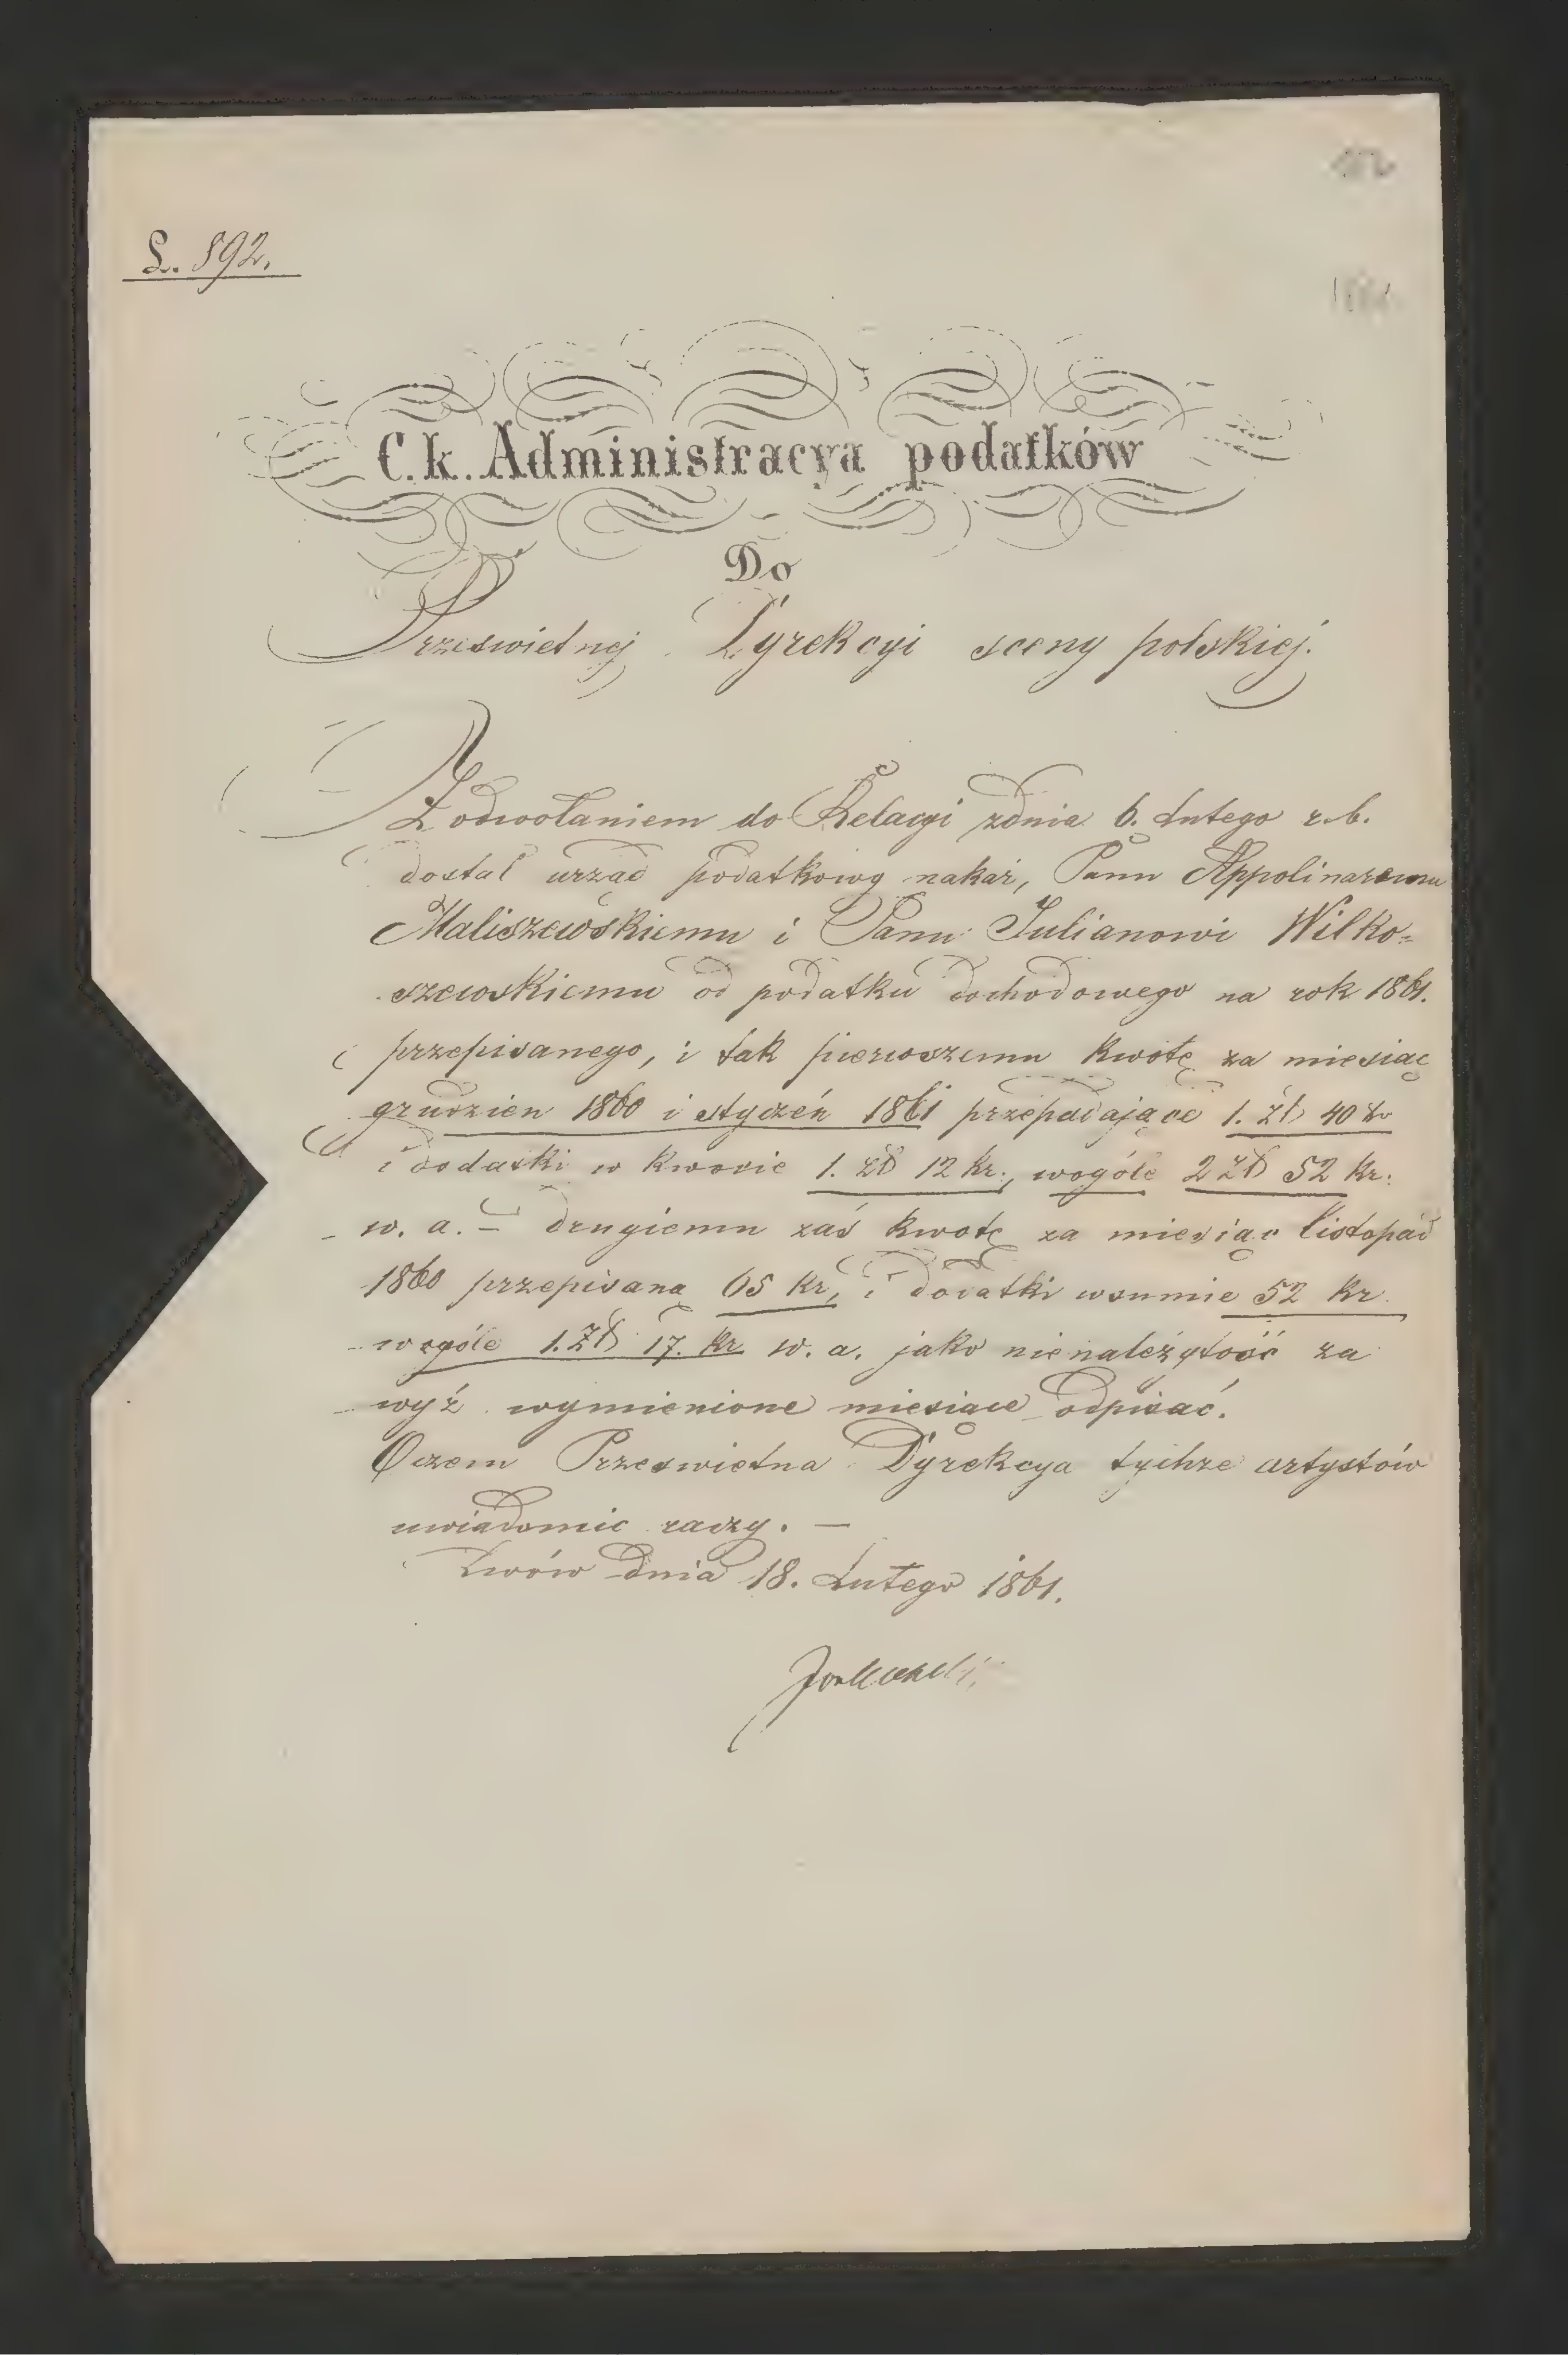 L. 892.
C. k. Administracya podatków
Do
Prześwietnej Dyrekcyi sceny polskiej.
Z odwołaniem do Relacyi zdnia 6. Lutego r. b.
dostał urząd podatkowy nakaz, Panu Appolinaremu
Maliszewskiemu i Panu Julianowi Wilko=
szewskiemu od podatku dochodowego na rok 1861.
przepisanego, i tak pierwszemu kwotę za miesiąc
grudzien 1860 i styczeń 1861 przepadające 1. zł 40 kr
i dodatki w kwocie 1. zł 12 kr., wogóle 2 zł 52 kr.
w. a. – drugiemu zaś kwotę za miesiąc listopad
1860 przepisaną 65 kr, i dodatki wsumie 52 kr.
wogóle 1. zł 17. kr w. a. jako nienależytość za
wyż wymienione miesiące odpisać.
Oczem Prześwietna Dyrekcya tychże artystów
uwiadomic raczy. —
Lwów dnia 18. Lutego 1861.